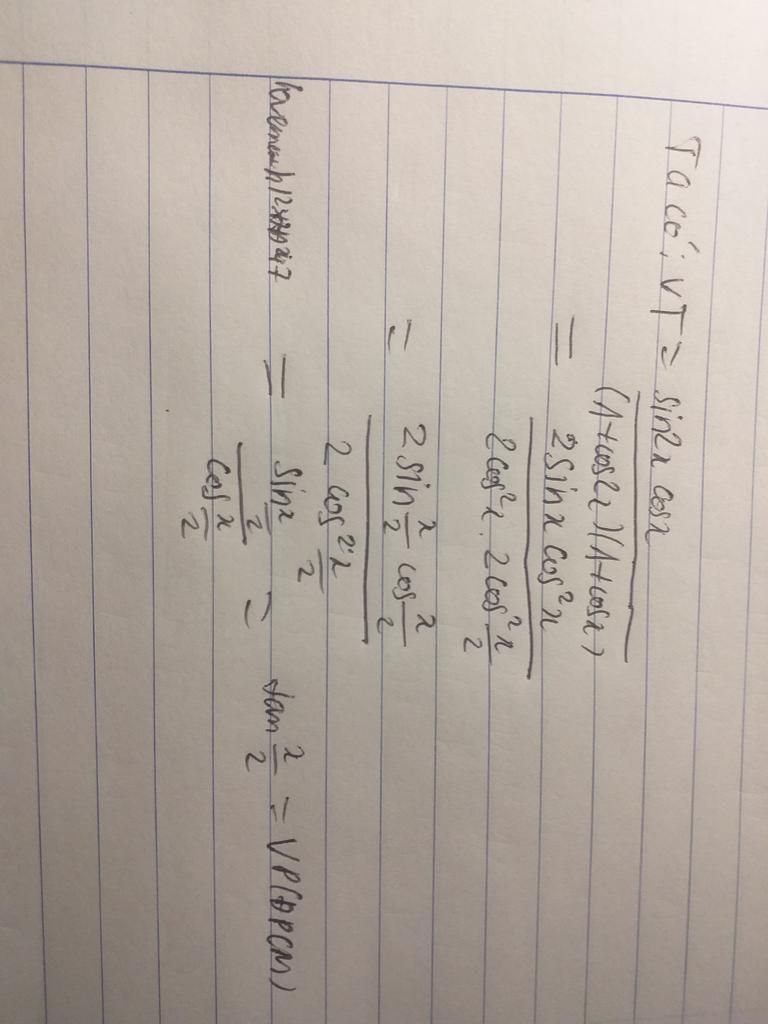 Ta có: VT = sin2x cosx / (1+cos2x)(1+cosx)
= 2sinx cos²x / 2cos²x . 2cos² x/2
= 2sin x/2 cos x/2 / 2cos² x/2
= sin x/2 / cos x/2 = tan x/2 = VP (ĐPCM)